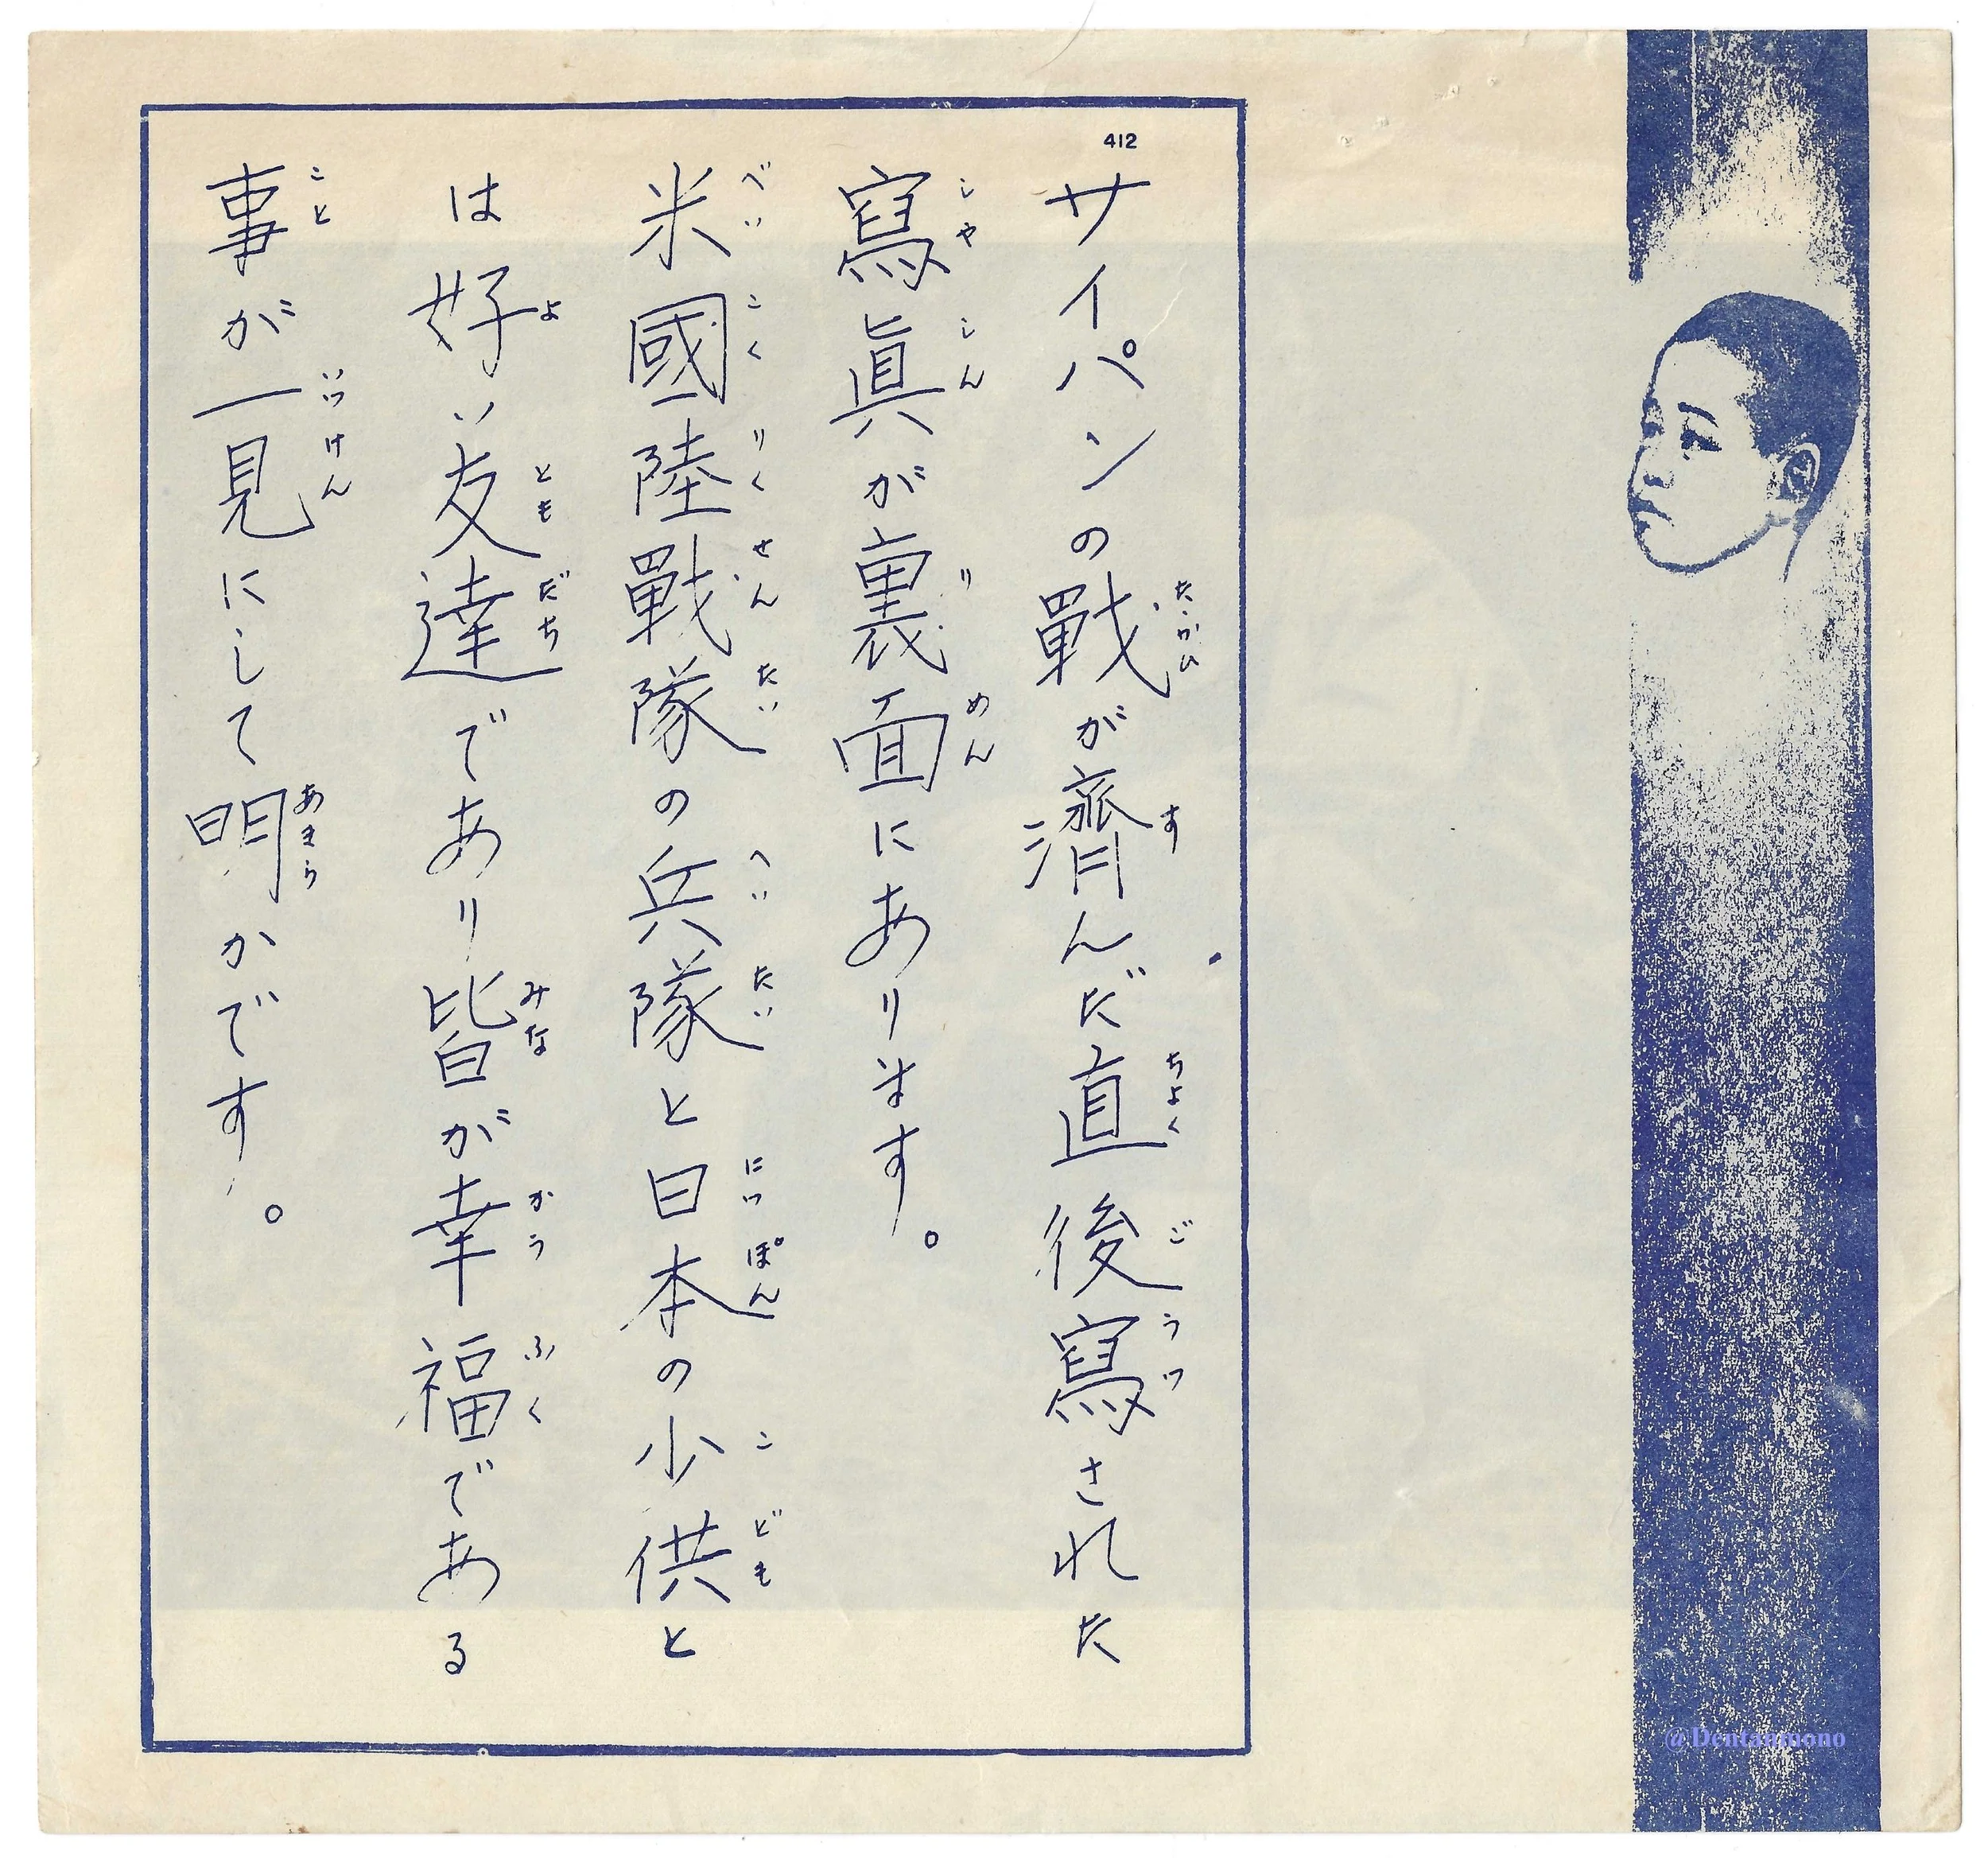 412
サイパンの戰が濟んだ直後寫された
たゝかひ す ちよく ご うつ
寫眞が裏面にあります。
しや しん り めん
米國陸戰隊の兵隊と日本の小供と
べい こく りく せん たい へい たい につ ぽん こ ども
は好い友達であり皆が幸福である
よ とも だち みな かう ふく
事が一見にして明かです。
こと いつ けん あきら
@Dentanmono